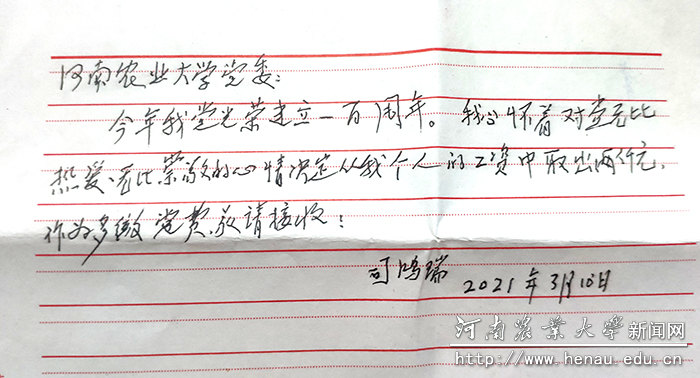 河南农业大学党委：
今年我党光荣建立一百周年。我心怀着对党无比
热爱、无比崇敬的心情决定从我个人的工资中取出两仟元，
作为多缴党费，敬请接收！
司鸿瑞 2021年3月10日
河南农业大学新闻网
http://www.henau.edu.cn